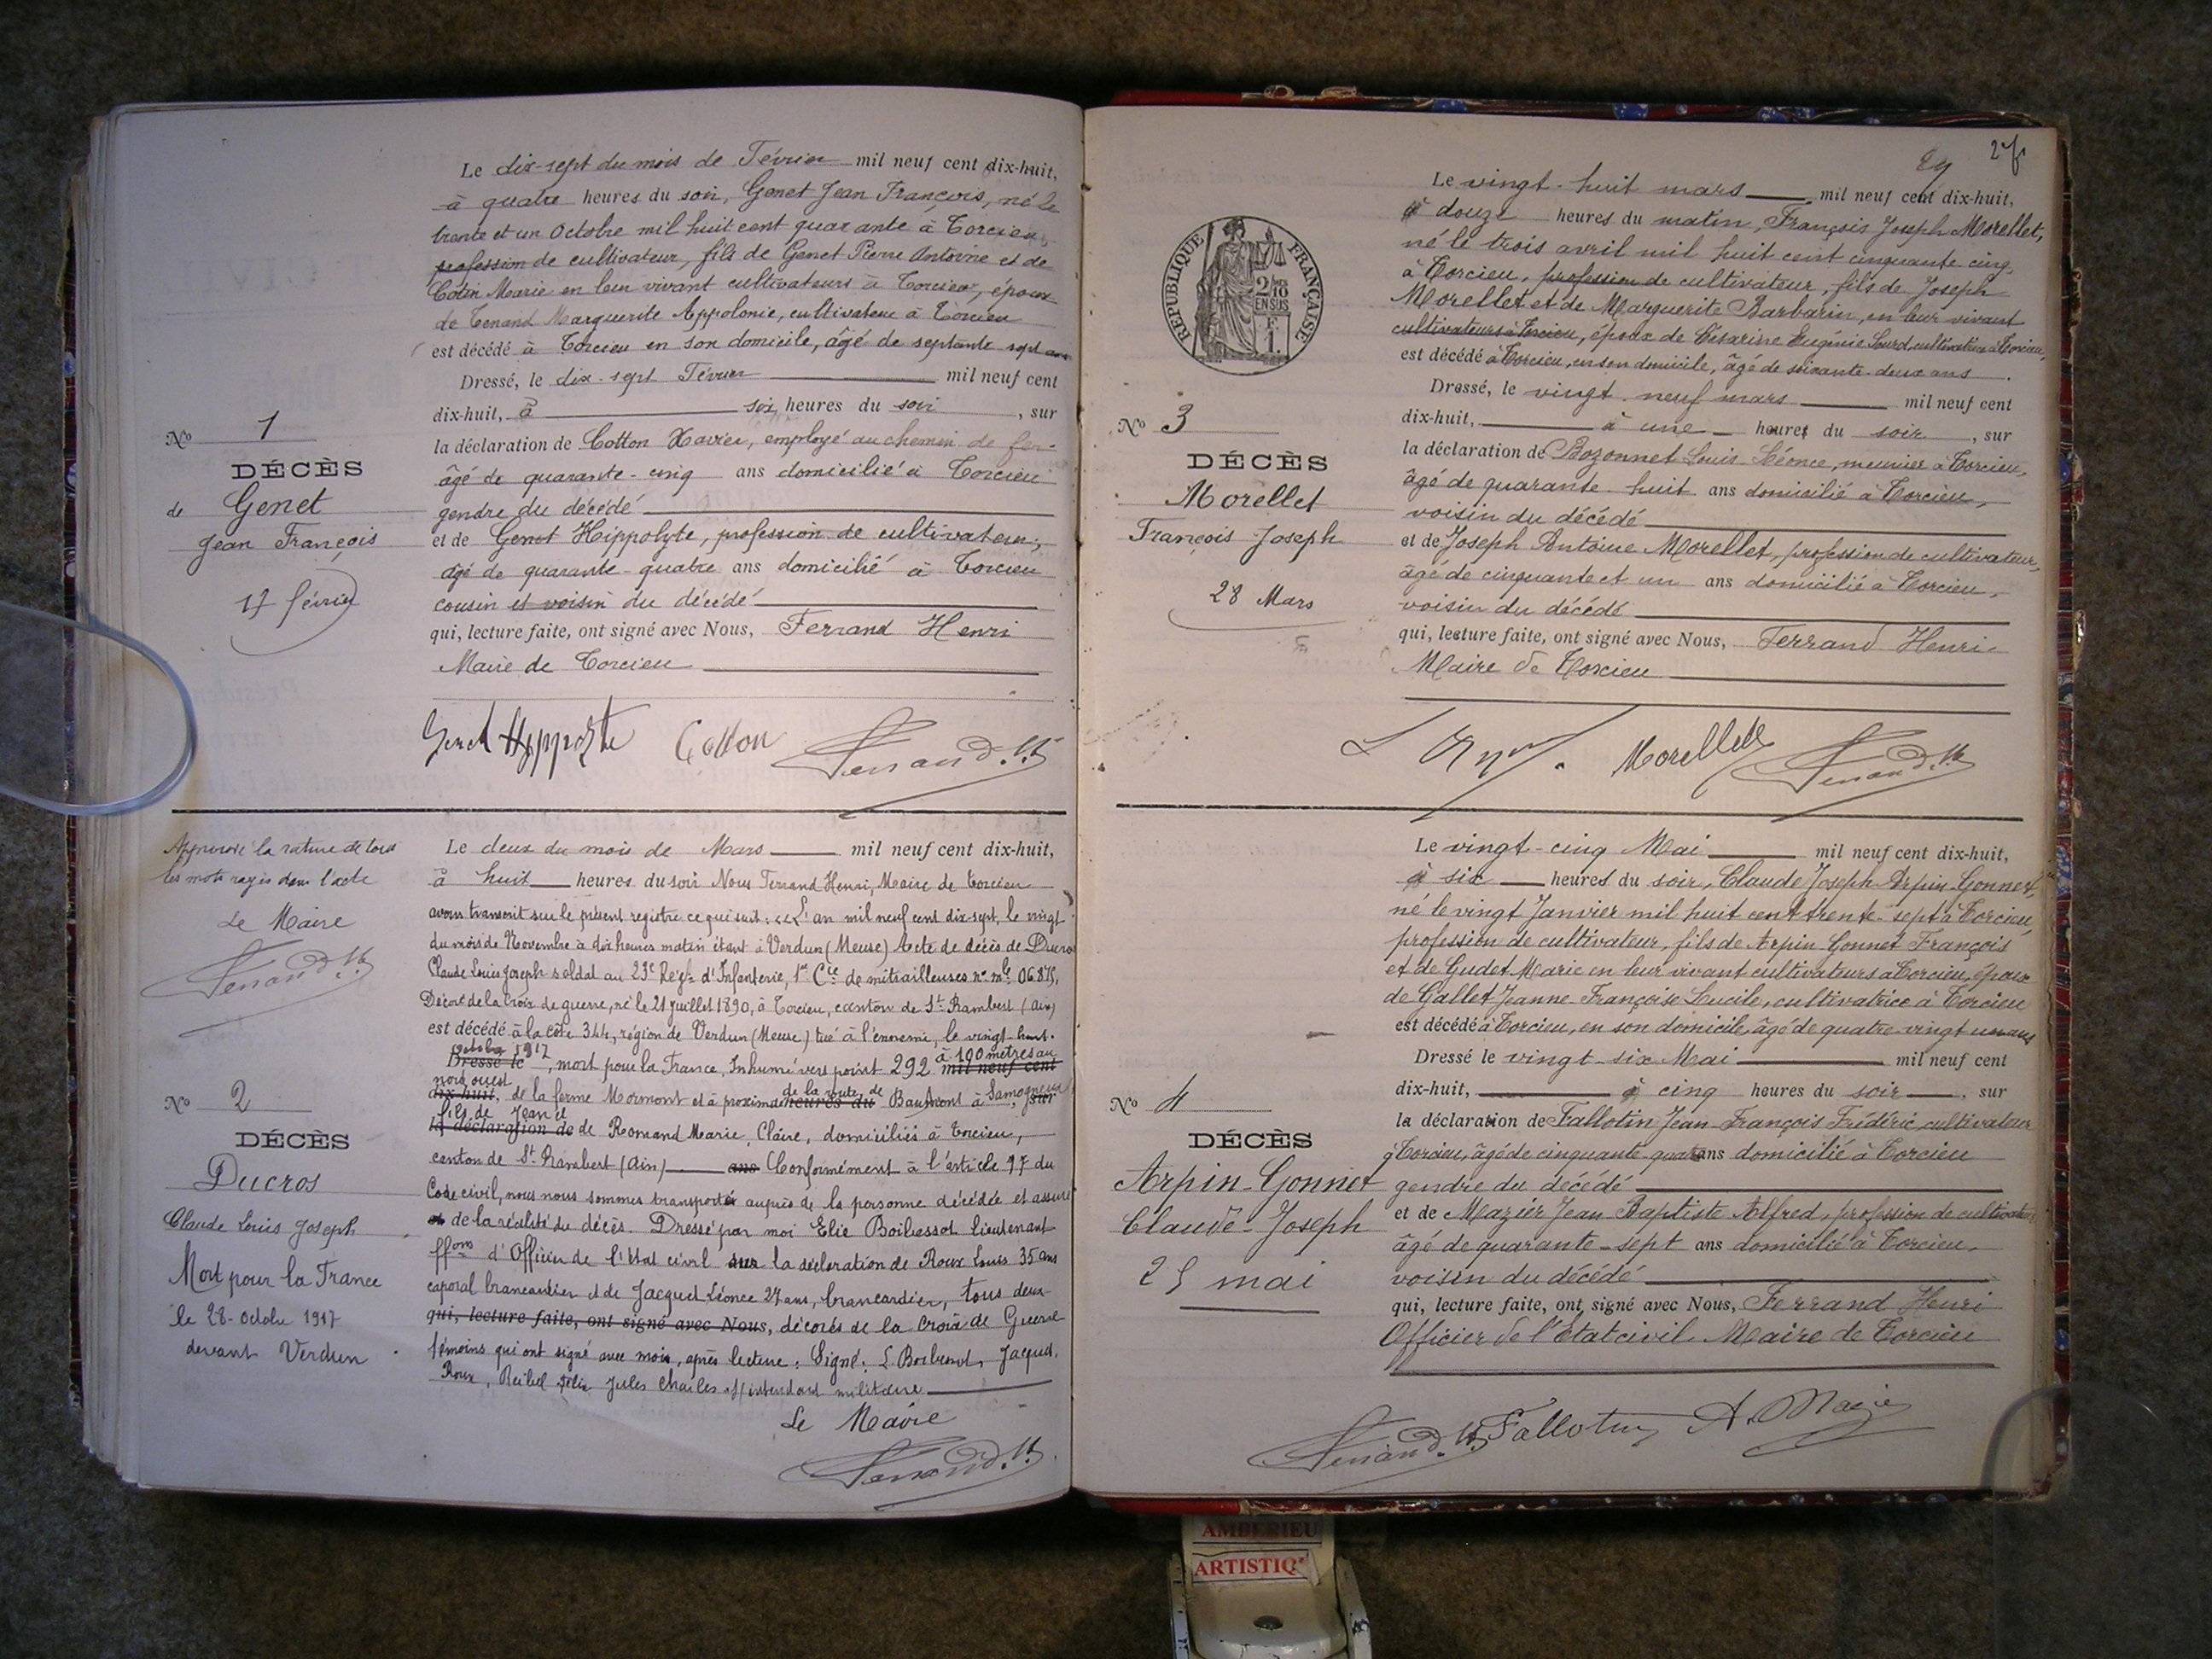 Le dix-sept du mois de Février mil neuf cent dix-huit,
à quatre heures du soir, Genet Jean François, né le
trente et un Octobre mil huit cent quarante à Torcieu,
profession de cultivateur, fils de Genet Pierre Antoine et de
Cotin Marie en leur vivant cultivateurs à Torcieu, époux
de Tenand Marguerite Appolonie, cultivateur à Torcieu
est décédé à Torcieu en son domicile, âgé de septante sept ans
Dressé, le dix-sept Février mil neuf cent
dix-huit, à six heures du soir, sur
la déclaration de Cotton Xavier, employé au chemin de fer
âgé de quarante-cinq ans domicilié à Torcieu
gendre du décédé
et de Genet Hippolyte, profession de cultivateur,
âgé de quarante-quatre ans domicilié à Torcieu
cousin et voisin du décédé
qui, lecture faite, ont signé avec Nous, Ferrand Henri
Maire de Torcieu
Genet Hippolyte Cotton Ferrand. H.
No 1
DÉCÈS
de Genet
Jean François
17 février
Approuvé la rature de tous
les mots rayés dans l'acte
Le Maire
Ferrand. H.
No 2
DÉCÈS
Ducros
Claude Louis Joseph
Mort pour la France
le 28 Octobre 1917
devant Verdun
Le deux du mois de Mars mil neuf cent dix-huit,
à huit heures du soir Nous Ferrand Henri, Maire de Torcieu
avons transcrit sur le présent registre ce qui suit : «L'an mil neuf cent dix-sept, le vingt
du mois de Novembre à dix heures matin étant à Verdun (Meuse) Acte de décès de Ducros
Claude Louis Joseph soldat au 23e Régt d'Infanterie, 1re Cie de mitrailleuses no mle 06875,
Décoré de la Croix de guerre, né le 21 juillet 1890, à Torcieu, canton de St Rambert (Ain)
est décédé à la côte 344, région de Verdun (Meuse) tué à l'ennemi, le vingt-huit
octobre 1917 à 100 mètres au
Dressé le, mort pour la France, Inhumé vers point 292 mil neuf cent
nord ouest de la route de
dix-huit, de la ferme Mormont et à proximité heures du Baumont à Samogneux, sur
fils de Jean et
la déclaration de de Romand Marie, Claire, domiciliés à Torcieu,
canton de St Rambert (Ain) ans Conformément à l'article 77 du
Code civil, nous nous sommes transporté auprès de la personne décédée et assuré
et de la réalité du décès. Dressé par moi Elie lieutenant
ffons d'Officier de l'Etat civil sur la déclaration de Roux Louis 35 ans
caporal brancardier et de Jacquet Léonce 27 ans, brancardier, tous deux
qui, lecture faite, ont signé avec Nous, décorés de la Croix de Guerre
témoins qui ont signé avec moi, après lecture. Signé: Jacquet,
Roux, Jules Charles s/intendant militaire
Le Maire
Ferrand. H.
29
Le vingt-huit mars mil neuf cent dix-huit,
à douze heures du matin, François Joseph Morellet,
né le trois avril mil huit cent cinquante cinq,
à Torcieu, profession de cultivateur, fils de Joseph
Morellet et de Marguerite Barbarin, en leur vivant
cultivateurs à Torcieu, époux de Césarine Eugénie Lourd, cultivatrice à Torcieu,
est décédé à Torcieu, en son domicile, âgé de soixante-deux ans.
Dressé, le vingt-neuf mars mil neuf cent
dix-huit, à une heures du soir, sur
la déclaration de Bozonnet Louis-Léonce, meunier à Torcieu,
âgé de quarante-huit ans domicilié à Torcieu,
voisin du décédé
et de Joseph Antoine Morellet, profession de cultivateur,
âgé de cinquante et un ans domicilié à Torcieu,
voisin du décédé
qui, lecture faite, ont signé avec Nous, Ferrand Henri
Maire de Torcieu
Morellet Ferrand. H.
RÉPUBLIQUE FRANÇAISE
2/10 EN SUS
F. 1.
No 3
DÉCÈS
Morellet
François Joseph
28 Mars
Le vingt-cinq Mai mil neuf cent dix-huit,
à six heures du soir, Claude Joseph Arpin-Gonnet,
né le vingt Janvier mil huit cent trente-sept à Torcieu,
profession de cultivateur, fils de Arpin-Gonnet François
et de Gudet Marie en leur vivant cultivateurs à Torcieu, époux
de Gallet Jeanne-Françoise Lucile, cultivatrice à Torcieu
est décédé à Torcieu, en son domicile, âgé de quatre-vingt un ans
Dressé le vingt-six Mai mil neuf cent
dix-huit, à cinq heures du soir, sur
la déclaration de Fallotin Jean-François Frédéric, cultivateur
à Torcieu, âgé de cinquante-quatre ans domicilié à Torcieu
gendre du décédé
et de Mazier Jean-Baptiste Alfred, profession de cultivateur
âgé de quarante-sept ans domicilié à Torcieu,
voisin du décédé
qui, lecture faite, ont signé avec Nous, Ferrand Henri
Officier de l'Etat civil Maire de Torcieu
Ferrand. H. Fallotin A. Mazier
No 4
DÉCÈS
Arpin-Gonnet
Claude-Joseph
25 mai
AMBERIEU
ARTISTIQ